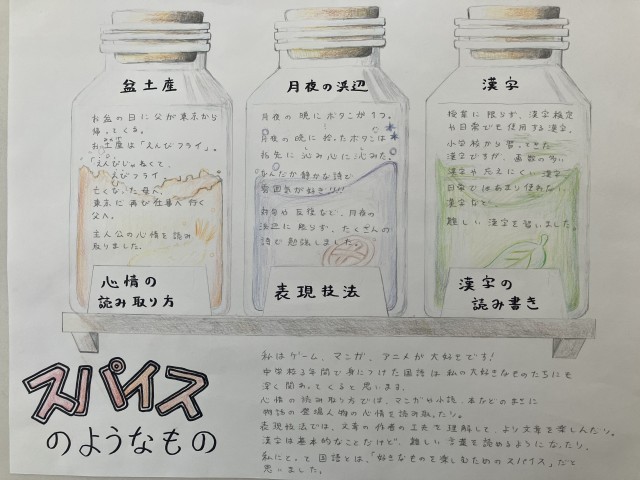 盆土産
お盆の日に父が東京から
帰ってくる。
お土産は「えんびフライ」。
「えんびじゃねくて、
えびフライ」
亡くなった母ん、
東京に再び仕事へ行く
父へ。
主人公の心情を読み
取りました。
心情の
読み取り方
月夜の浜辺
月夜の晩にボタンが1つ。
月夜の晩に拾ったボタンは
指先に沁み心に沁みた。
なんだか静かな詩で
雰囲気が好き!!!
対句や反復など、月夜の
浜辺に限らず、たくさんの
詩で勉強しました。
表現技法
漢字
授業に限らず、漢字検定
や日常でも使用する漢字。
小学校から習ってきた
漢字ですが、画数の多い
漢字や覚えにくい漢字、
日常ではあまり使わない
漢字など、
難しい漢字を習いました。
漢字の
読み書き
スパイス
のようなもの
私はゲーム、マンガ、アニメが大好きです!
中学校3年間で身につけた国語は私の大好きなものたちにも
深く関わってくると思います。
心情の読み取り方では、マンガや小説、本などのまさに
物語の登場人物の心情を読み取ったり。
表現技法では、文章の作者の工夫を理解して、より文章を楽しんだり。
漢字は基本的なことだけど、難しい言葉を読めるようになったり。
私にとって国語とは、「好きなものを楽しむためのスパイス」だと
思いました。